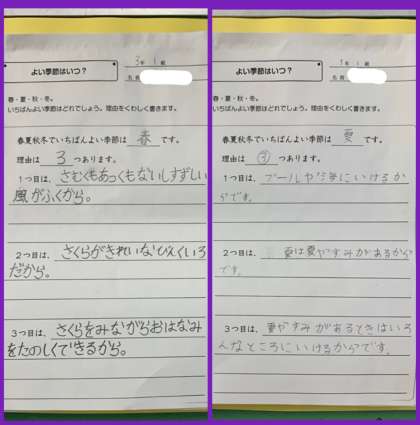 よい季節はいつ？
3年 1組
名前
春・夏・秋・冬。
いちばんよい季節はどれでしょう。理由をくわしく書きます。
春夏秋冬でいちばんよい季節は 春 です。
理由は 3 つあります。
1つ目は、さむくもあつくもないしすずしい
風がふくから。
2つ目は、さくらがきれいなぴんくいろ
だから。
3つ目は、さくらをみながらおはなみ
をたのしくできるから。
よい季節はいつ？
3年 1組
名前
春・夏・秋・冬。
いちばんよい季節はどれでしょう。理由をくわしく書きます。
春夏秋冬でいちばんよい季節は 夏 です。
理由は ③ つあります。
1つ目は、プールや海にいけるか
らです。
2つ目は、夏は夏やすみがあるから
です。
3つ目は、夏やすみがあるときはいろ
んなところにいけるからです。